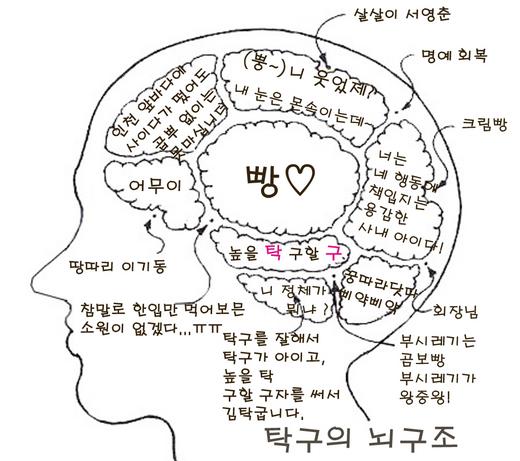 살살이 서영춘
명예 회복
크림빵
(뿅~)니 웃었제?
내 눈은 몬속이는데~
인천 앞바다에
사이다가 떴어도
곱뿌 없이는
못마십니다
너는
네 행동에
책임지는
용감한
사내 아이다!
어무이
빵♡
높을 탁 구할 구
니 정체가
뭔냐?
꿍따라닷따
삐약삐약
땅따리 이기동
참말로 한입만 먹어보믄
소원이 없겠다...ㅠㅠ
회장님
탁구를 잘해서
탁구가 아이고,
높을 탁
구할 구자를 써서
김탁굽니다.
부시레기는
곰보빵
부시레기가
왕중왕!
탁구의 뇌구조